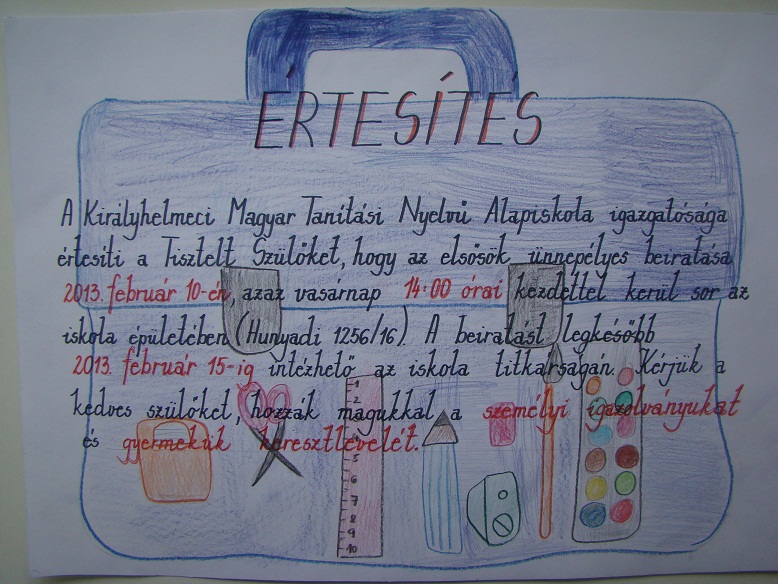 ÉRTESÍTÉS
A Királyhelmeci Magyar Tanítási Nyelvű Alapiskola igazgatósága
értesíti a Tisztelt Szülőket, hogy az elsősök ünnepélyes beiratása
2013. február 10-én, azaz vasárnap 14:00 órai kezdettel kerül sor az
iskola épületében (Hunyadi 1256/16). A beiratást legkésőbb
2013. február 15-ig intézhető az iskola titkárságán. Kérjük a
kedves szülőket, hozzák magukkal a személyi igazolványukat
és gyermekük keresztlevelét.
1
5
6
7
8
9
10